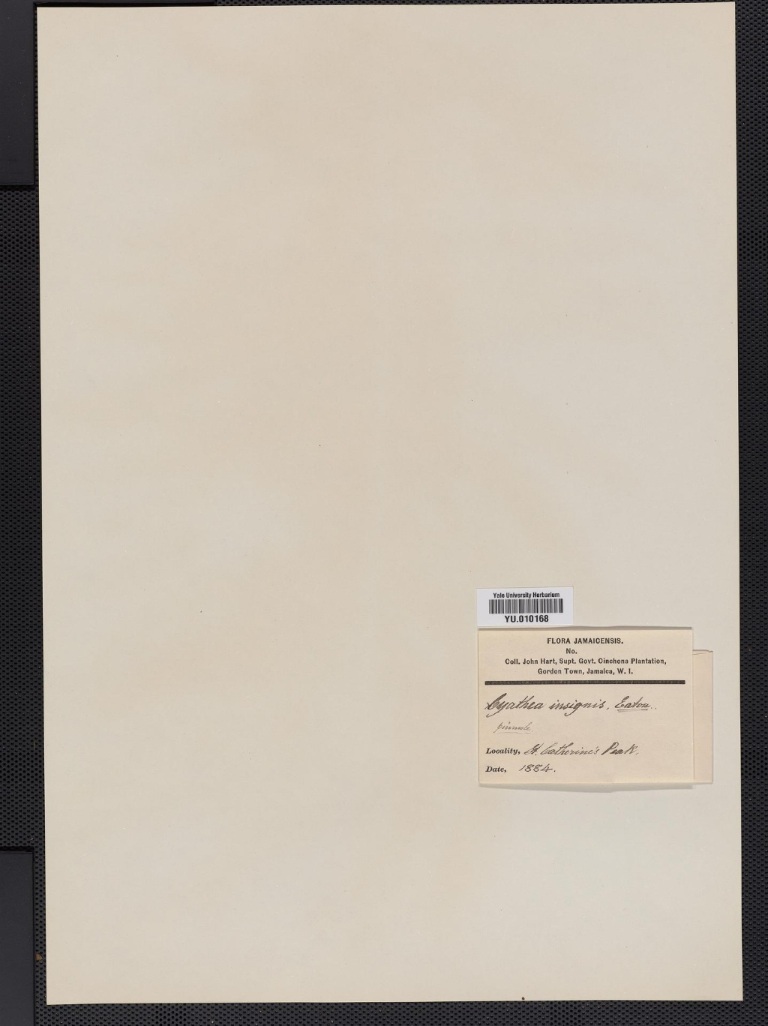 Yale University Herbarium
YU.010168
FLORA JAMAICENSIS.
No.
Coll. John Hart, Supt. Govt. Cinchona Plantation,
Gordon Town, Jamaica, W. I.
Cyathea insignis, Eaton.
pinnule
Locality, St. Catherine's Peak.
Date, 1884.